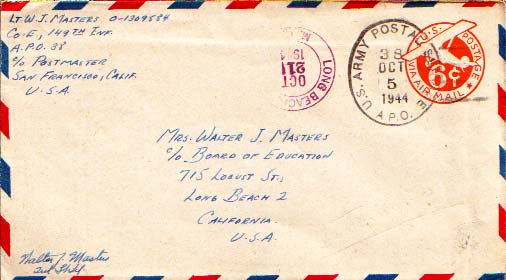 Lt. W. J. Masters O-1309584
Co-E, 149th Inf.
A.P.O. 38
c/o Postmaster
San Francisco, Calif.
U.S.A.
LONG BEACH
OCT
21
194
U.S. ARMY POSTAL
38
OCT
5
1944
A.P.O.
U.S. POSTAGE
6¢
VIA AIR MAIL
Mrs. Walter J. Masters
c/o Board of Education
715 Locust St.,
Long Beach 2
California.
U.S.A.
Walter J. Masters